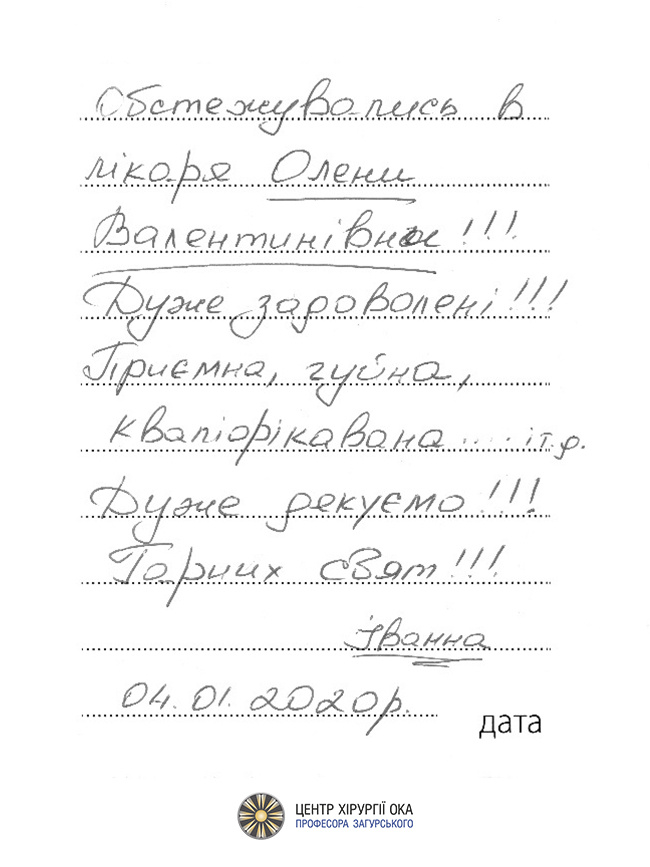 Обстежувались в
лікаря Олени
Валентинівни!!!
Дуже задоволені!!!
Приємна, чуйна,
кваліфікавана .... і т.д.
Дуже дякуємо!!!
Гарних свят!!!
Іванна
04.01.2020р.
дата
ЦЕНТР ХІРУРГІЇ ОКА
ПРОФЕСОРА ЗАГУРСЬКОГО